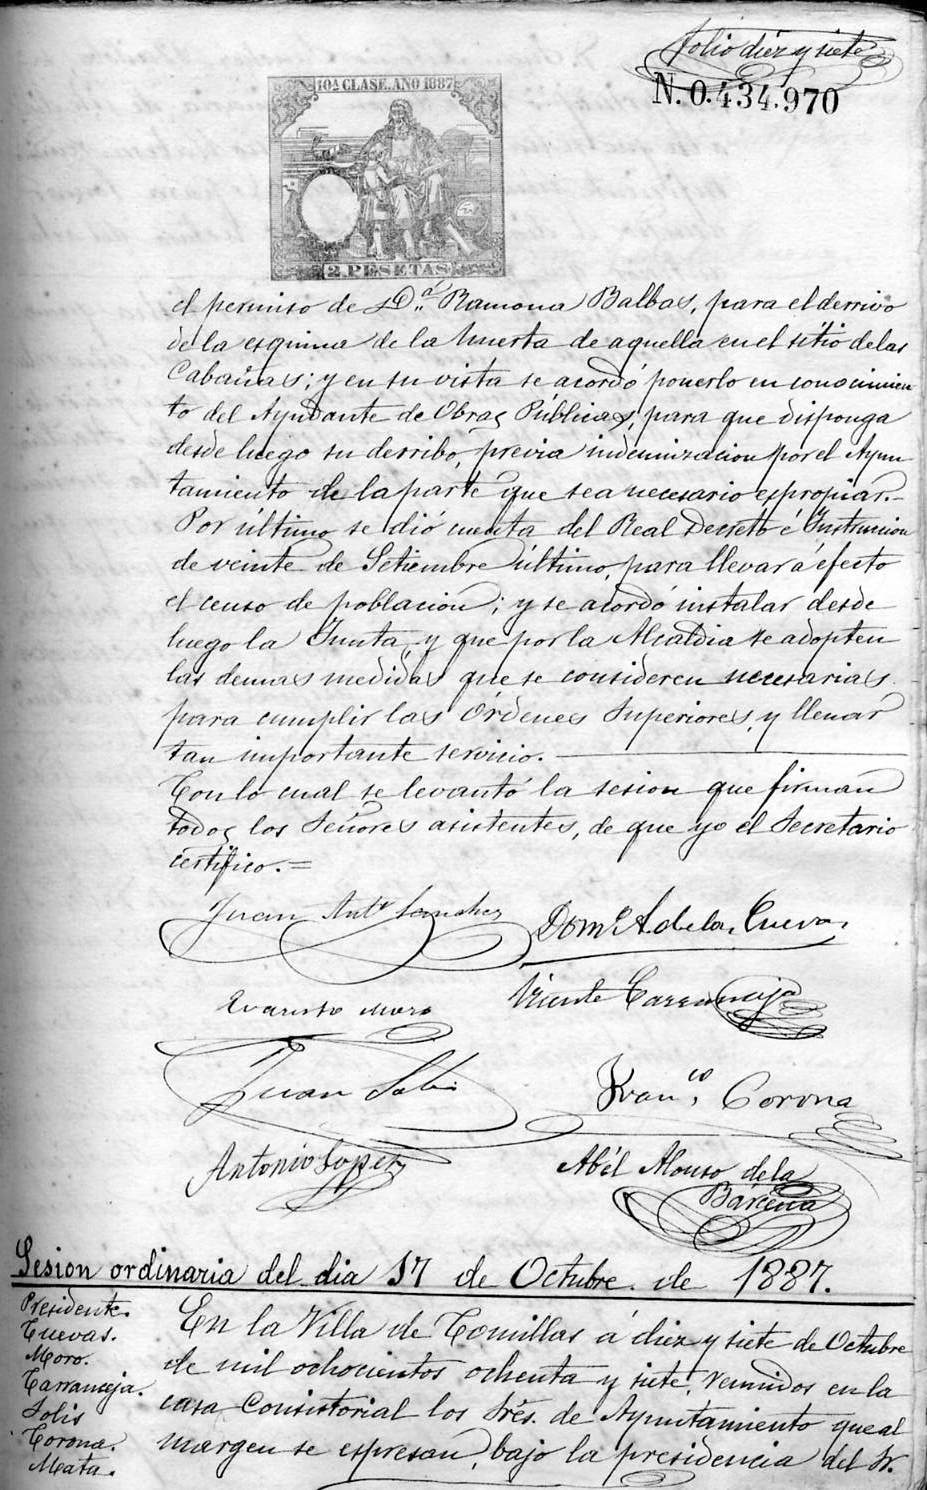 Folio diez y siete
N. 0.434.970
10A CLASE. AÑO 1887
2 PESETAS
el permiso de Dª Ramona Balbas, para el derrivo
de la esquina de la huerta de aquella en el sitio de las
Cabañas; y en su vista se acordó ponerlo en conocimien
to del Ayudante de Obras Públicas, para que disponga
desde luego su derribo, previa indemnizacion por el Ayun
tamiento de la parte que sea necesario espropiar.-
Por último se dió cuenta del Real Decreto é Instruccion
de veinte de Setiembre último, para llevar á efecto
el censo de poblacion; y se acordó instalar desde
luego la Junta, y que por la Alcaldia se adopten
las demas medidas que se consideren necesarias
para cumplir las Órdenes Superiores, y llenar
tan importante servicio.
Con lo cual se levantó la sesion que firman
todos los Señores asistentes, de que yo el Secretario
certifico.=
Juan Antº Sanchez
Domº A. de las Cuevas
Evaristo Moro
Vicente Carranceja
Juan Solis
Franco Corona
Antonio Lopez
Abél Alonso de la
Bárcena
Sesion ordinaria del dia 17 de Octubre de 1887.
Presidente.
Cuevas.
Moro.
Carranceja.
Solis
Corona.
Mata.
En la Villa de Comillas á diez y siete de Octubre
de mil ochocientos ochenta y siete, reunidos en la
casa Consistorial los Sres. de Ayuntamiento que al
margen se espresan, bajo la presidencia del Sr.